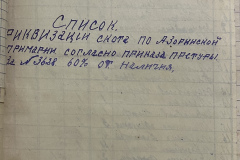 Список.
Риквизации скота по Азоринской
Примарии согласно приказа претуры
за № 3638 60% от наличия,